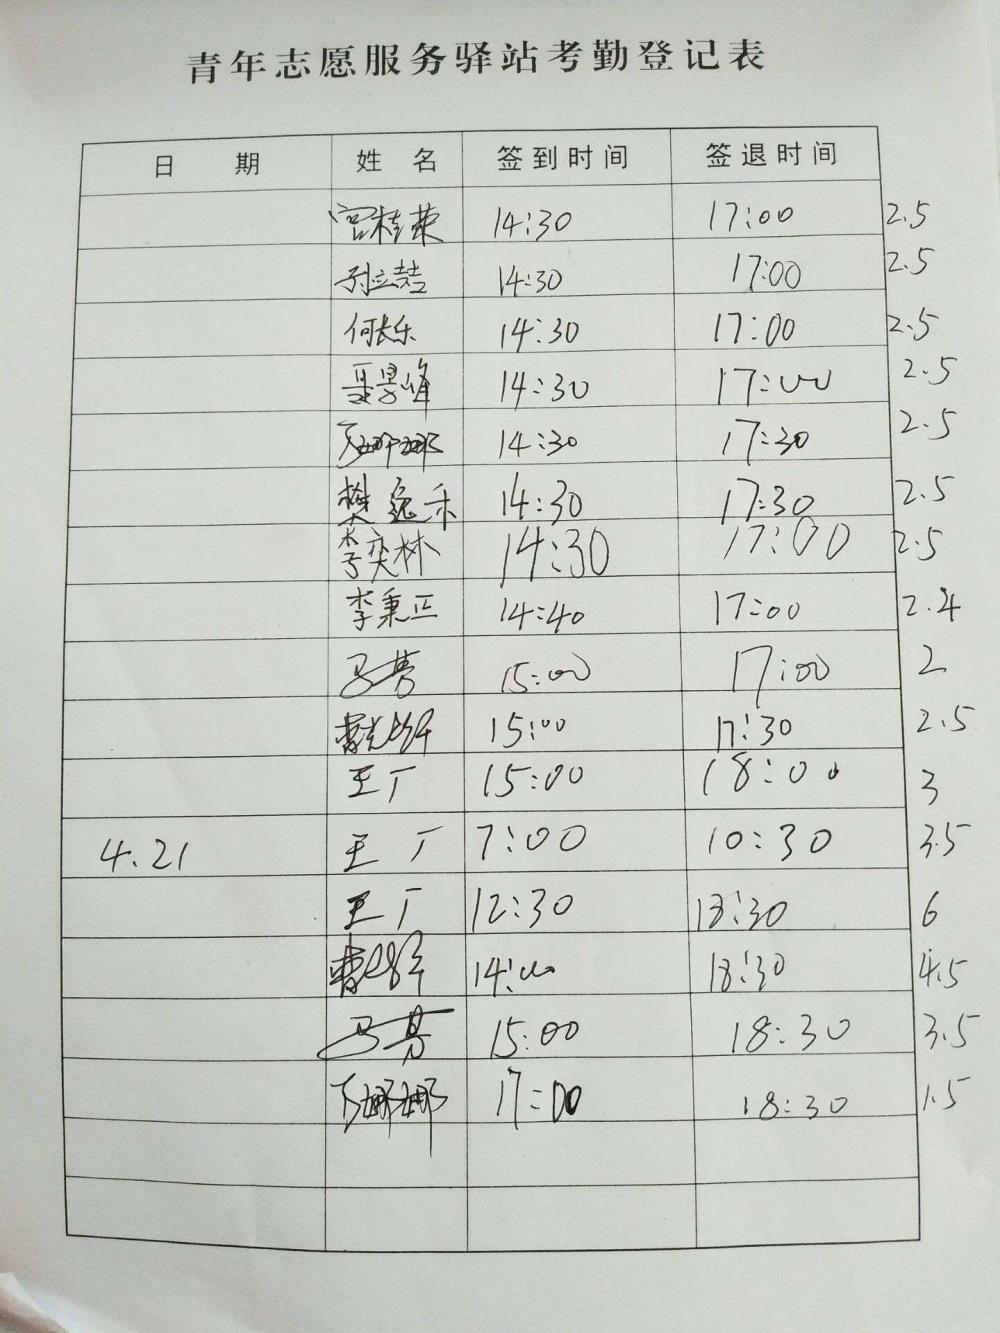 青年志愿服务驿站考勤登记表
日 期 姓 名 签到时间 签退时间
宫桂荣 14:30 17:00 2.5
孙立喆 14:30 17:00 2.5
何长乐 14:30 17:00 2.5
聂昱峰 14:30 17:00 2.5
娜娜 14:30 17:30 2.5
樊逸禾 14:30 17:30 2.5
李奕林 14:30 17:00 2.5
李秉正 14:40 17:00 2.4
15:00 17:00 2
15:00 17:30 2.5
王厂 15:00 18:00 3
4.21 王厂 7:00 10:30 3.5
王厂 12:30 18:30 6
14:00 18:30 4.5
15:00 18:30 3.5
娜娜 17:00 18:30 1.5